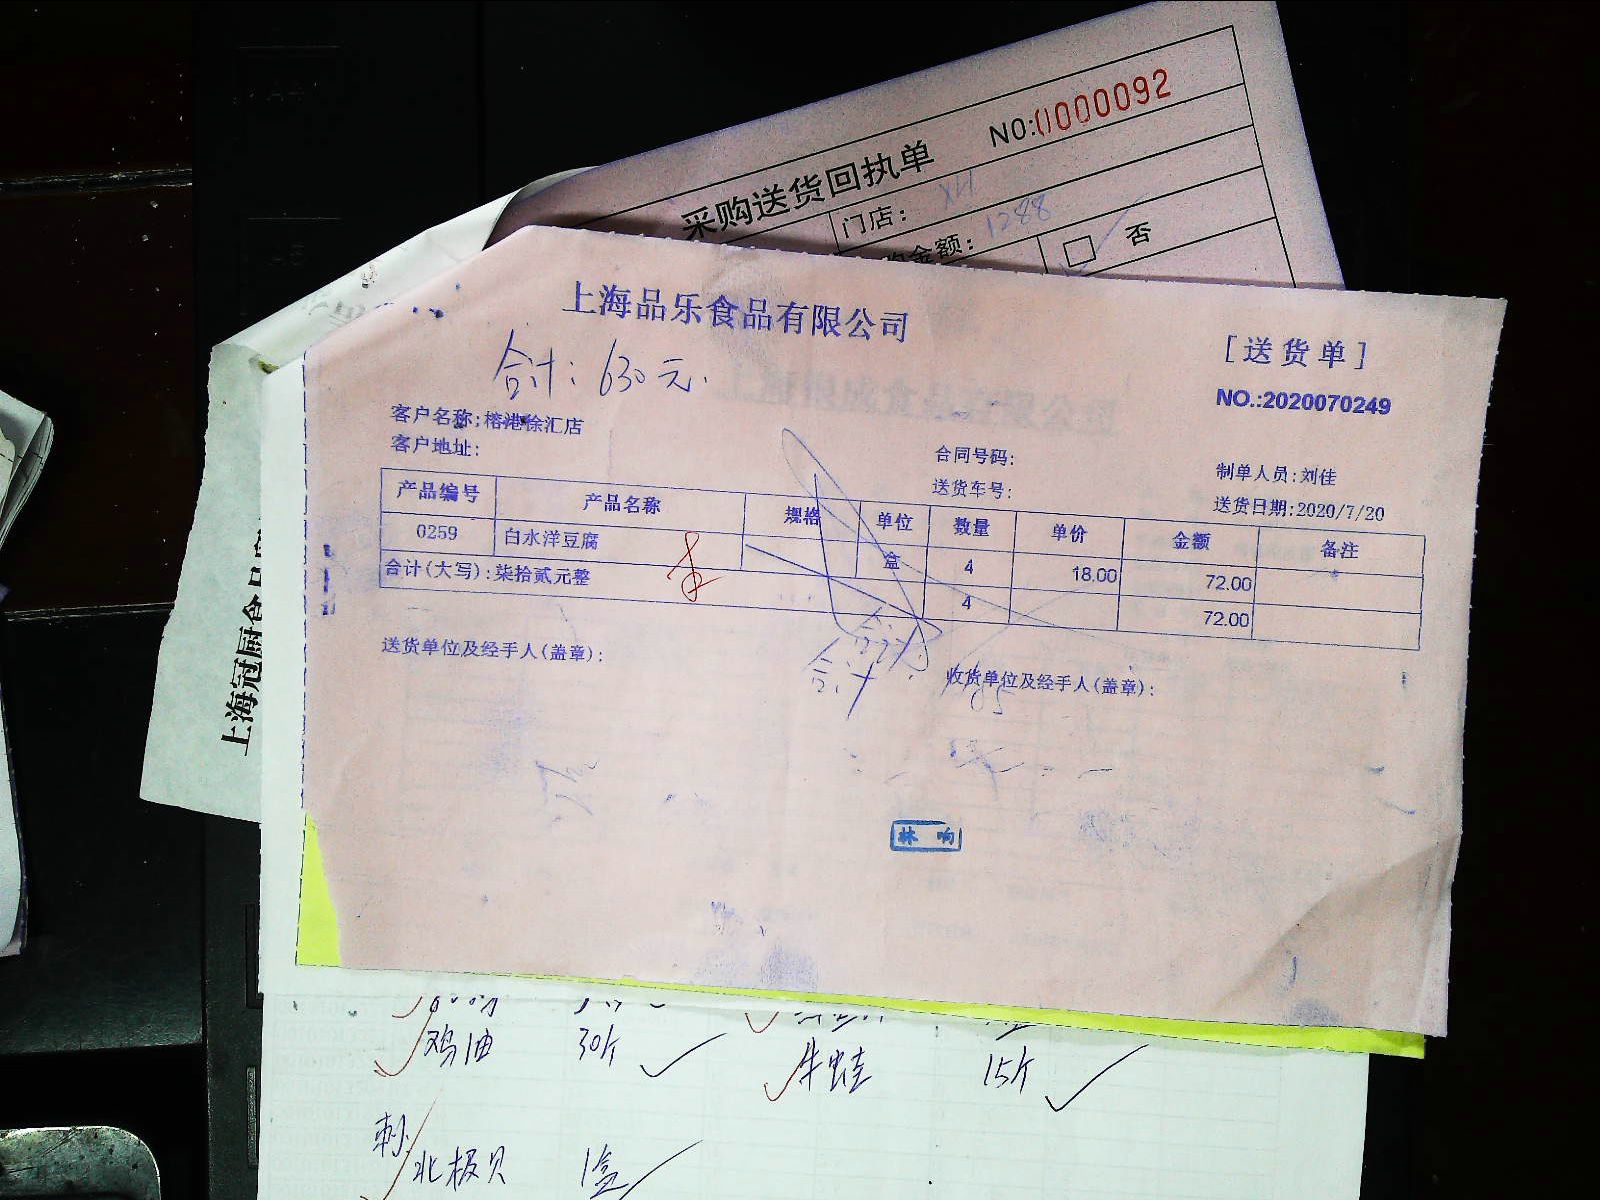 NO:0000092
采购送货回执单
门店：
购金额：1288
否
上海品乐食品有限公司
[送货单]
合计：630元.
NO.:2020070249
客户名称:榕港徐汇店
客户地址:
合同号码:
制单人员:刘佳
送货车号:
送货日期:2020/7/20
产品编号 产品名称 规格 单位 数量 单价 金额 备注
0259 白水洋豆腐 盒 4 18.00 72.00
合计(大写):柒拾贰元整 4 72.00
送货单位及经手人(盖章):
合计
收货单位及经手人(盖章):
林响
上海冠厨食品
鸡油 30斤
牛蛙 15斤
刺
北极贝 1盒